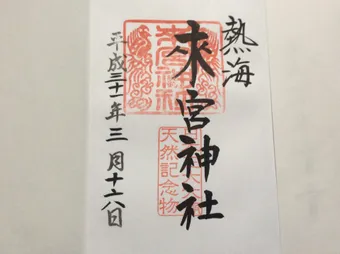 熱海
來宮神社
天然記念物
平成三十一年三月十六日